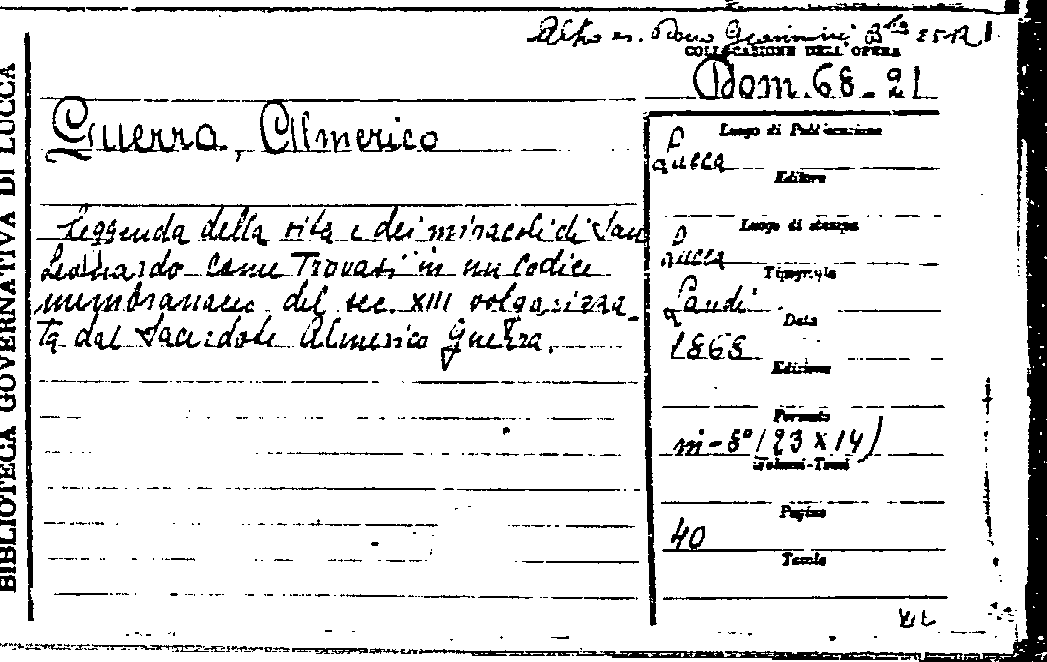 BIBLIOTECA GOVERNATIVA DI LUCCA
Altro es.
COLLOCAZIONE DELL'OPERA
Dom. 68-21
Guerra, Almerico
Leggenda della vita e dei miracoli di San
Leonardo come trovasi in un codice
membranaceo del sec. XIII volgarizza-
ta dal Sacerdote Almerico Guerra.
Luogo di Pubblicazione
Lucca
Editore
Luogo di stampa
Lucca
Tipografia
Landi
Data
1868
Edizione
Formato
in-8° (23 x 14)
Volumi-Tomi
Pagine
40
Tavole